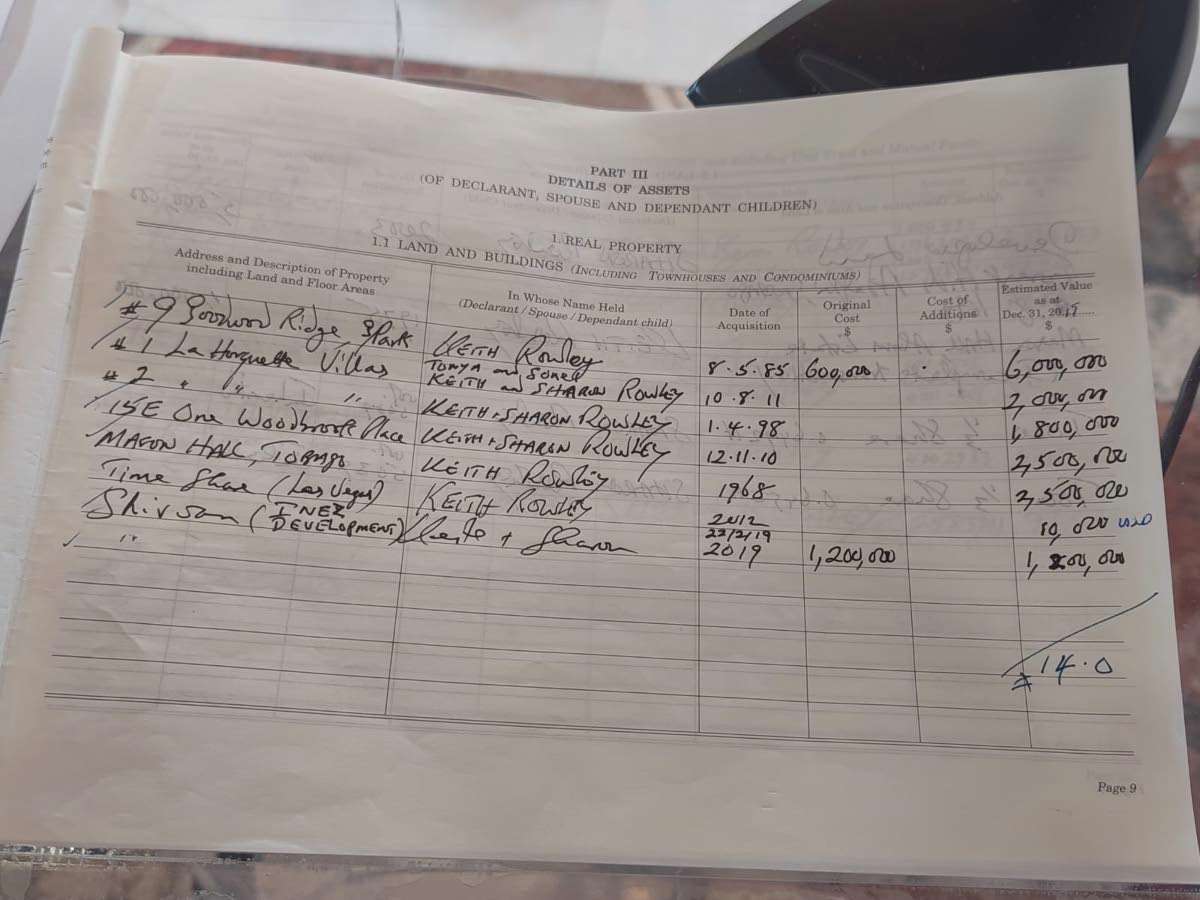 PART III
DETAILS OF ASSETS
(OF DECLARANT, SPOUSE AND DEPENDANT CHILDREN)
1. REAL PROPERTY
1.1 LAND AND BUILDINGS (INCLUDING TOWNHOUSES AND CONDOMINIUMS)
Address and Description of Property including Land and Floor Areas
In Whose Name Held (Declarant / Spouse / Dependant child)
Date of Acquisition
Original Cost $
Cost of Additions $
Estimated Value as at Dec. 31, 20 $
#9 Goodwood Ridge, Park KEITH Rowley 8.5.85 600,000 6,000,000
#1 La Horquette Villas TONYA and SONEL KEITH and SHARON ROWLEY 10.8.11 2,000,000
#2 " " " KEITH + SHARON ROWLEY 1.4.98 1,800,000
15E One Woodbrook Place KEITH + SHARON ROWLEY 12.11.10 2,500,000
MASON HALL, TOBAGO KEITH ROWLEY 1968 2,500,000
Time Share (Las Vegas) KEITH ROWLEY 2012 10,000 USD
Shirvan (INEZ DEVELOPMENT) + Sharon 22/2/19
" 2019 1,200,000 1,200,000
14.0
Page 9